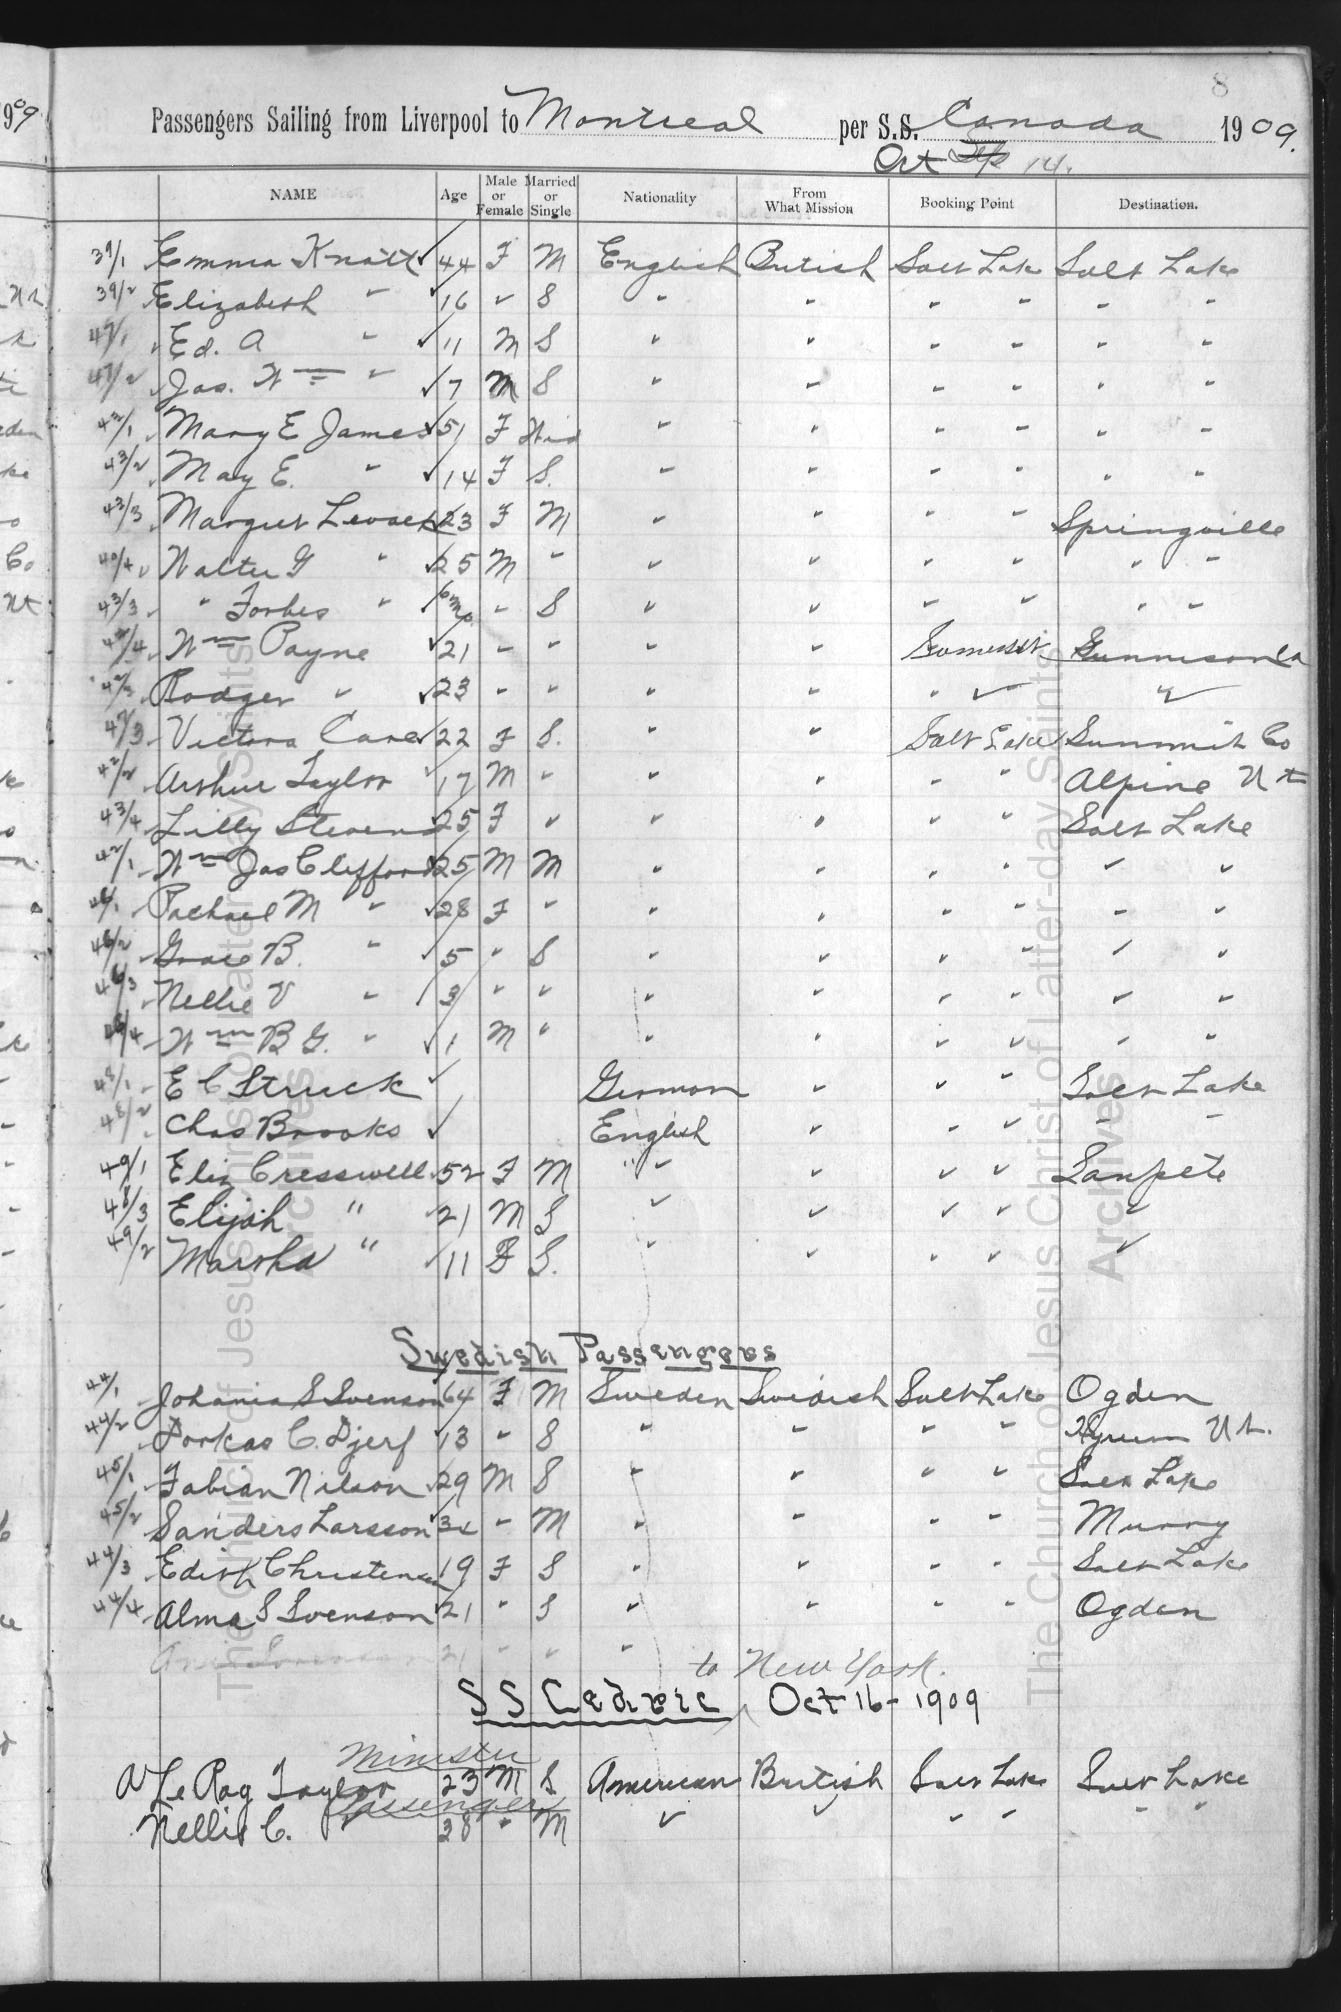 8
Passengers Sailing from Liverpool to Montreal per S.S. Canada 1909.
Oct Sep 14.
NAME Age Male or Female Married or Single Nationality From What Mission Booking Point Destination.
39/1 Emma Knott 44 F M English British Salt Lake Salt Lake
39/2 Elizabeth " 16 " S " " " " " "
47/1 Ed. A " 11 M S " " " " " "
47/2 Jas. Wm " 7 M S " " " " " "
43/1 Mary E James 51 F Wid " " " " " "
43/2 May E. " 14 F S. " " " " " "
43/3 Margret 23 F M " " " " Springville
40/4 Walter G " 25 M " " " " " " "
43/3 " Forbes " 6 mo. " S " " " " " "
42/4 Wm Payne 21 " " " " Somerset Gunnison
42/3 Rodger " 23 " " " " " "
47/3 Victora Care 22 F S. " " Salt Lake Summit Co
42/2 Arthur Taylor 17 M " " " " " Alpine Ut
43/4 Lilly Stevens 25 F " " " " " Salt Lake
42/1 Wm Jas Clifford 25 M M " " " " " "
46/1 Rachael M " 28 F " " " " " " "
46/2 Grace B. " 5 " S " " " " " "
46/3 Nellie V " 3 " " " " " " " "
46/4 Wm B G. " 1 M " " " " " " "
48/1 E C Struck German " " " Salt Lake
48/2 Chas Brooks English " " " " "
49/1 Eliz Cresswell 52 F M " " " " Sanpete
48/3 Elijah " 21 M S " " " " "
49/2 Marsha " 11 F S. " " " " "
Swedish Passengers
44/1 Johania S Svenson 64 F M Sweden Swidish Salt Lake Ogden
44/2 Dorkas C. Djerf 13 " S " " " " Hyrum Ut.
45/1 Fabian Nilson 29 M S " " " " Salt Lake
45/2 Sanders Larsson " M " " " " Murry
44/3 Edith Christensen 19 F S " " " " Salt Lake
44/4 Alma S Svenson 21 " S " " " " Ogden
21 " " "
to New York.
SS Cedric Oct 16 - 1909
Minister
Le Ray Taylor 23 M S American British Salt Lake Salt Lake
Passenger
Nellie C. 28 " M " " " " " "
The Church of Jesus Christ of Latter-day Saints
Archives
The Church of Jesus Christ of Latter-day Saints
Archives